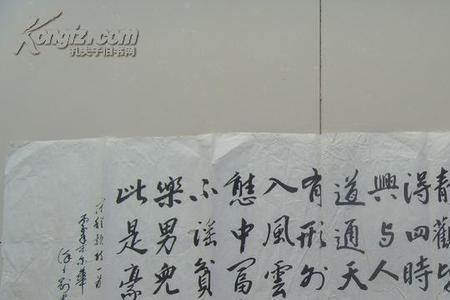 Kongfz.com
孔夫子旧书网
靜觀
得四時
興與人
道通天
有形外
入風雲
態中富
不滛貧
樂男兒
此是豪
京華